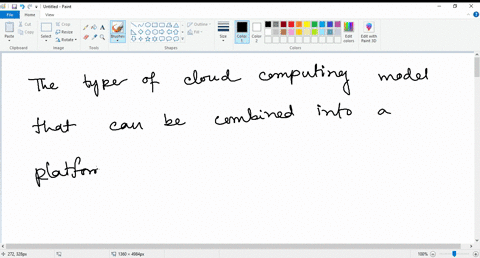 Untitled - Paint
File Home View
Paste Cut Copy Select Crop Resize Rotate Brushes Outline Fill Size Color 1 Color 2 Edit colors Edit with Paint 3D
Clipboard Image Tools Shapes Colors
The type of cloud computing model
that can be combined into a
platfor
272, 328px 1380 × 4984px 100%